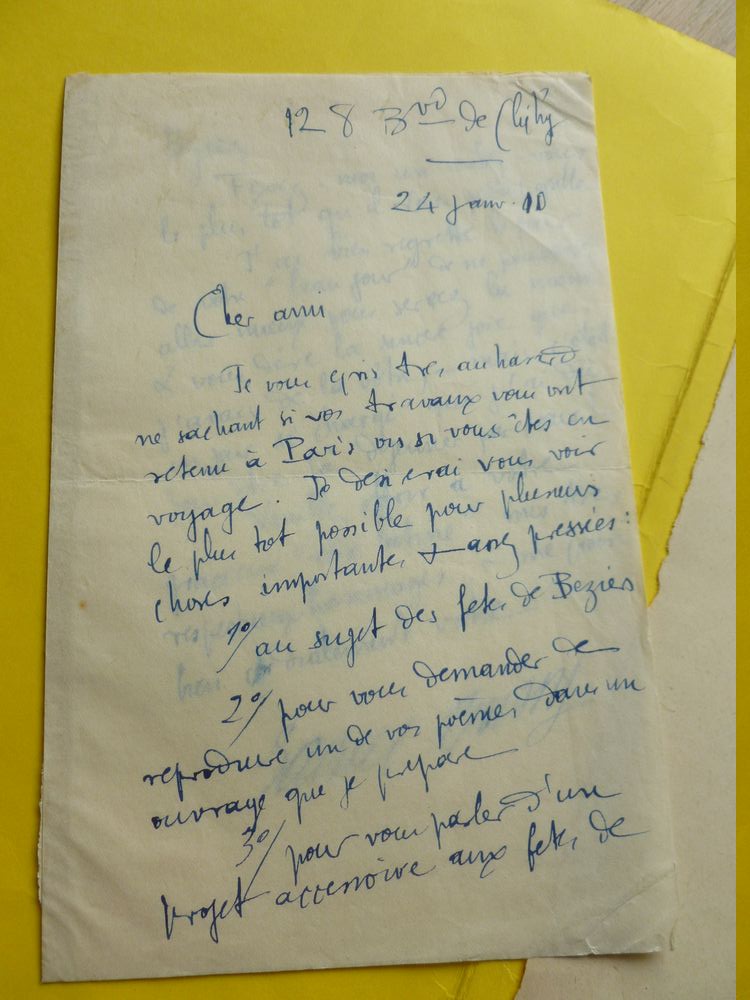 128 Bvd de Clichy
24 janv. 10
Cher ami
Je vous écris très au hasard
ne sachant si vos travaux vous ont
retenu à Paris ou si vous êtes en
voyage. Je desirerai vous voir
le plus tot possible pour plusieurs
choses importantes & assez pressées :
1o/ au sujet des fetes de Beziers
2o/ pour vous demander de
reproduire un de vos poèmes dans un
ouvrage que je prépare
3o/ pour vous parler d'un
projet accessoire aux fetes de